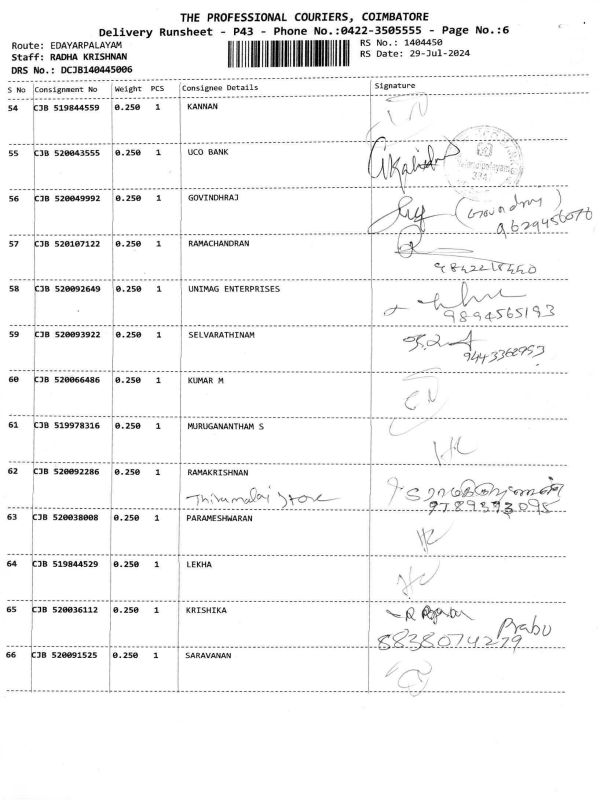 THE PROFESSIONAL COURIERS, COIMBATORE
Delivery Runsheet - P43 - Phone No.:0422-3505555 - Page No.:6
Route: EDAYARPALAYAM
Staff: RADHA KRISHNAN
DRS No.: DCJB140445006
RS No.: 1404450
RS Date: 29-Jul-2024
S No Consignment No Weight PCS Consignee Details Signature
54 CJB 519844559 0.250 1 KANNAN
55 CJB 520043555 0.250 1 UCO BANK
56 CJB 520049992 0.250 1 GOVINDHRAJ
9629456076
57 CJB 520107122 0.250 1 RAMACHANDRAN
58 CJB 520092649 0.250 1 UNIMAG ENTERPRISES
9894565193
59 CJB 520093922 0.250 1 SELVARATHINAM
9443362953
60 CJB 520066486 0.250 1 KUMAR M
61 CJB 519978316 0.250 1 MURUGANANTHAM S
62 CJB 520092286 0.250 1 RAMAKRISHNAN
Thirumalai Store
63 CJB 520038008 0.250 1 PARAMESHWARAN
64 CJB 519844529 0.250 1 LEKHA
65 CJB 520036112 0.250 1 KRISHIKA
Prabu
8838074279
66 CJB 520091525 0.250 1 SARAVANAN